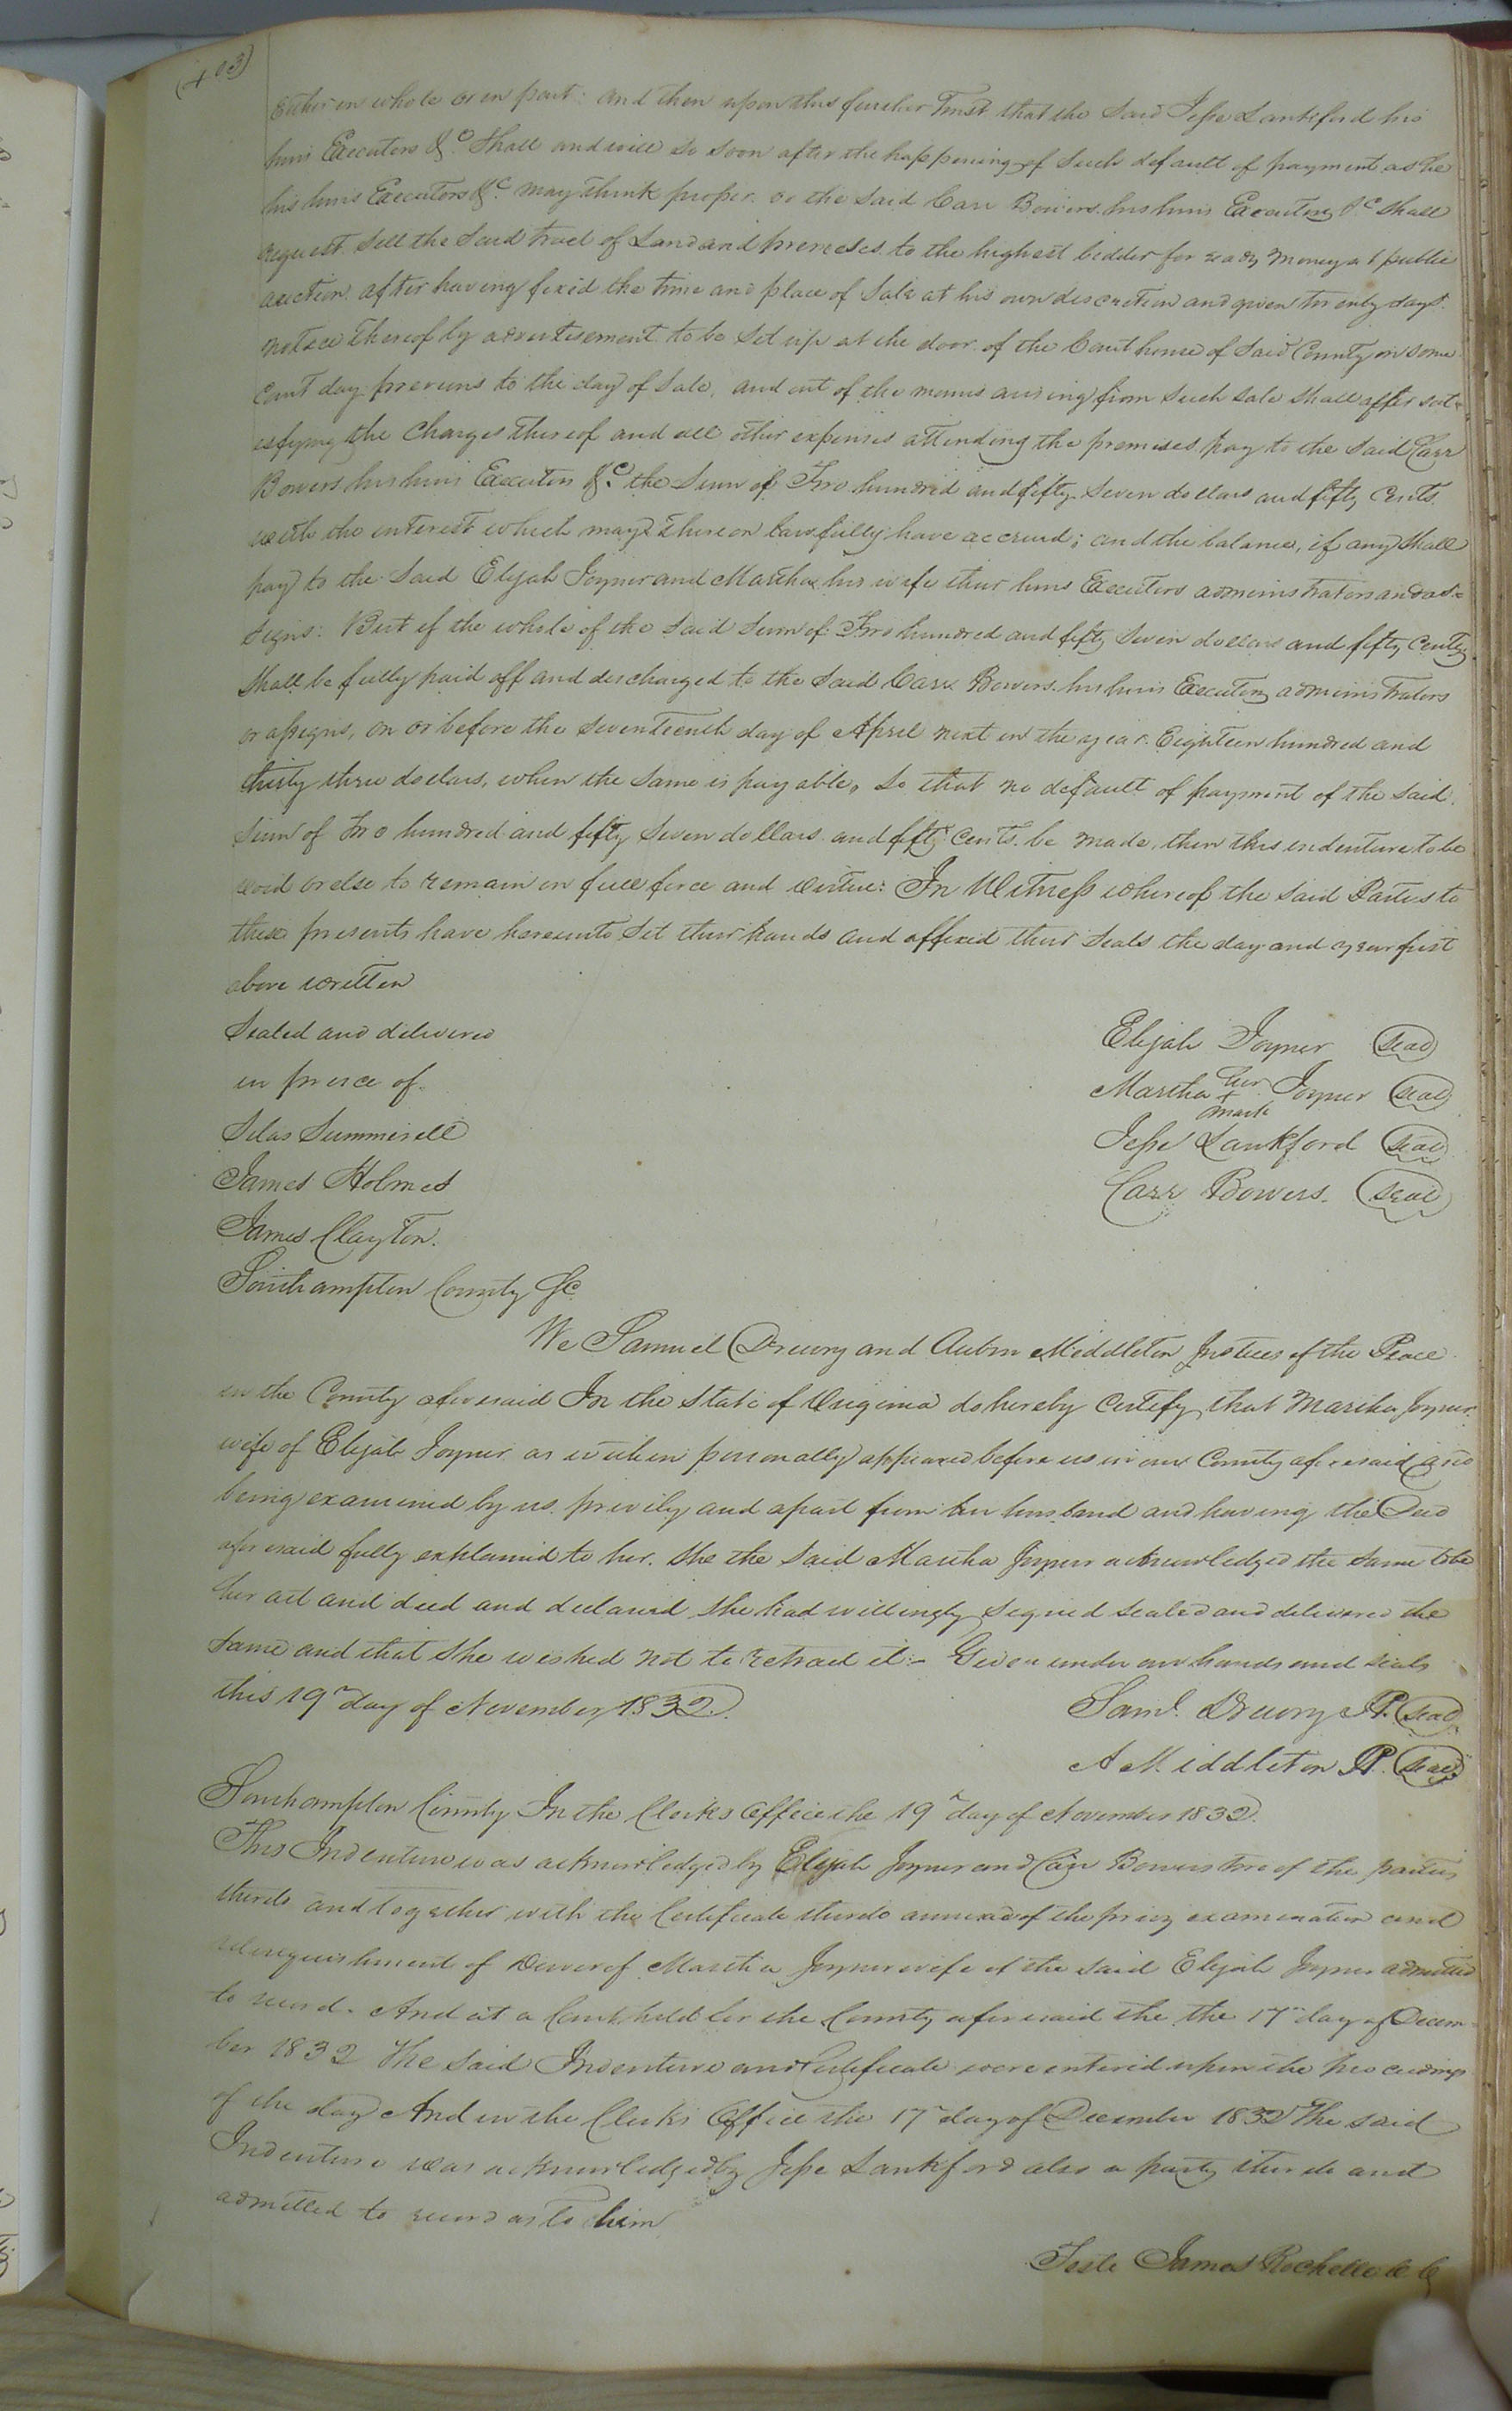 (403)
either in whole or in part: and then upon this further Trust that the said Jesse Lankford his
heirs Executors &c. Shall and will so soon after the happening of such default of payment as he
his heirs Executors &c. may think proper. or the said Carr Bowers his heirs Executors &c shall
request. Sell the said tract of Land and premeses to the highest bidder for ready money at public
auction. after having fixed the time and place of sale at his own discretion and given twenty days.
notice thereof by advertisement to be set up at the door of the Court house of said County on some
Court day previuns to the day of sale, and out of the monies arising from such sale shall after sat=
isfying the Charges thereof and all other expenses attending the premises, pay to the said Carr
Bowers his heirs Executors &c. the sum of Two hundred and fifty Seven dollars and fifty Cents.
with the interest which may thereon lawfully have accrued; and the balance, if any shall
pay to the said Elijah Joyner and Martha his wife their heirs Executors administrators and as=
signs: But if the whole of the said sum of Two hundred and fifty seven dollars and fifty Cents,
shall be fully paid off and discharged to the said Carr Bowers. his heirs Executors administrators
or assigns, on or before the seventeenth day of April next in the year Eighteen hundred and
thirty three dollars, when the same is payable, so that no default of payment of the said
sum of two hundred and fifty seven dollars and fifty cents. be made, then this indenture to be
void or else to remain in full force and virtue: In Witness whereof the said Parties to
these presents have hereunto set their hands and affixed their seals the day and year first
above written
Sealed and delivered
in presce of.
Silas Summerell
James Holmes
James Clayton.
Elijah Joyner (seal)
Martha her + mark Joyner (seal)
Jesse Lankford (seal)
Carr Bowers. (seal)
Southampton County Sc
We Samuel Drewry and Aubin Middleton Justices of the Peace
in the County aforesaid In the State of Virginia do hereby Certify, that Martha Joyner.
wife of Elijah Joyner as within personally appeared before us in our County aforesaid and
being examined by us. privily and apart from her husband and having the Deed
aforesaid fully explained to her. She the said Martha Joyner acknowledged the same to be
her act and deed and declared she had willingly signed sealed and delivered the
same and that she wished not to retract it:- Given under our hands and seals
this 19th day of November 1832.
Saml. Drewry JP. (seal)
A Middleton JP. (seal)
Southampton County In the Clerks Office the 19th day of November 1832.
This Indenture was acknowledged by Elijah Joyner and Carr Bowers two of the parties
thereto and together with the Certificate thereto annexed of the privy examination and
relinquishment of Dower of Martha Joyner wife of the said Elijah Joyner admitted
to record. And at a Court held for the County aforesaid the the 17th day of Decem=
ber 1832 The said Indenture and Certificate were entered upon the proceedings
of the day And in the Clerks Office the 17th day of December 1832 The said
Indenture was acknowledged by Jesse Lankford also a party thereto and
admitted to record as to him
Teste James Rochelle C C